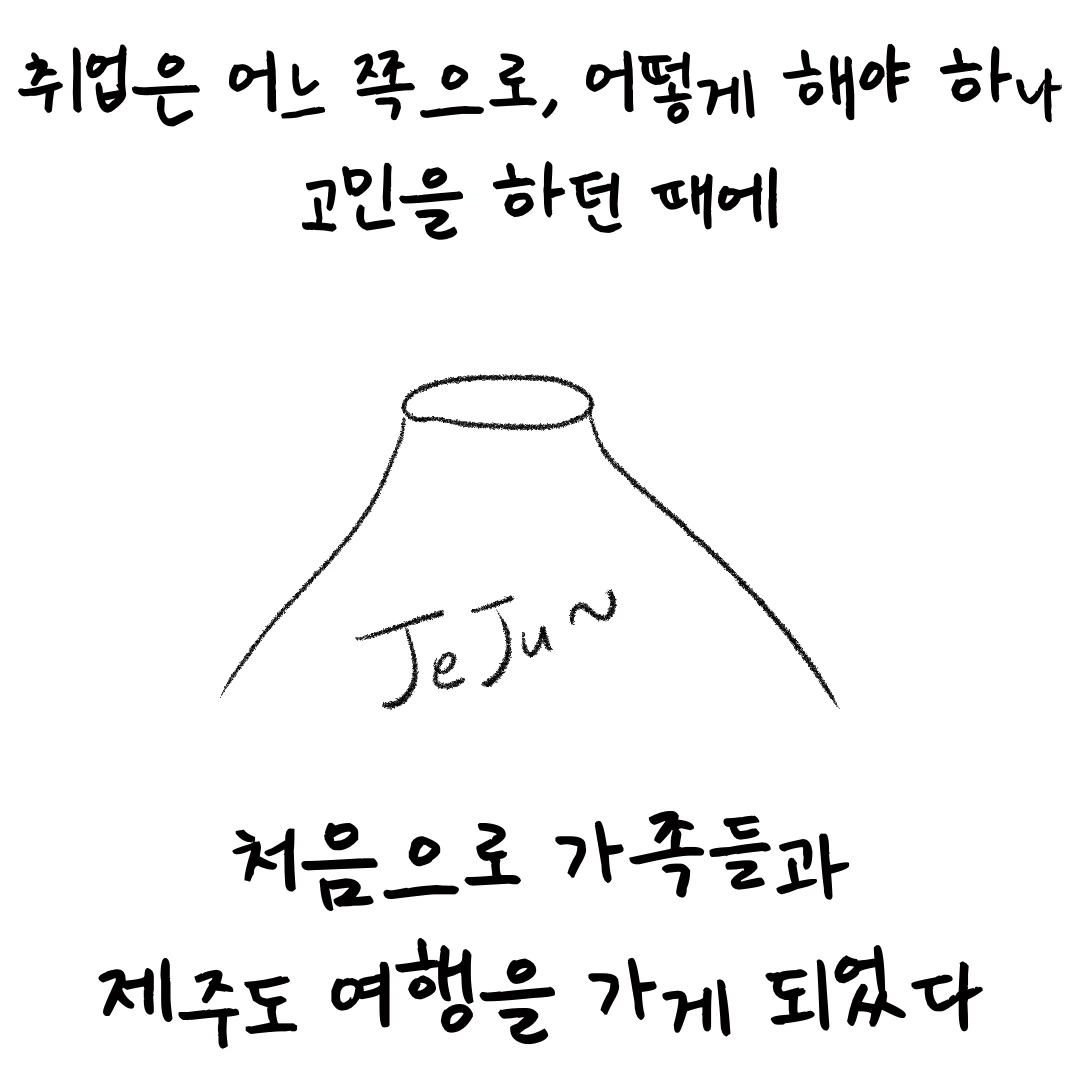 취업은 어느 쪽으로, 어떻게 해야 하나
고민을 하던 때에
JeJu~
처음으로 가족들과
제주도 여행을 가게 되었다